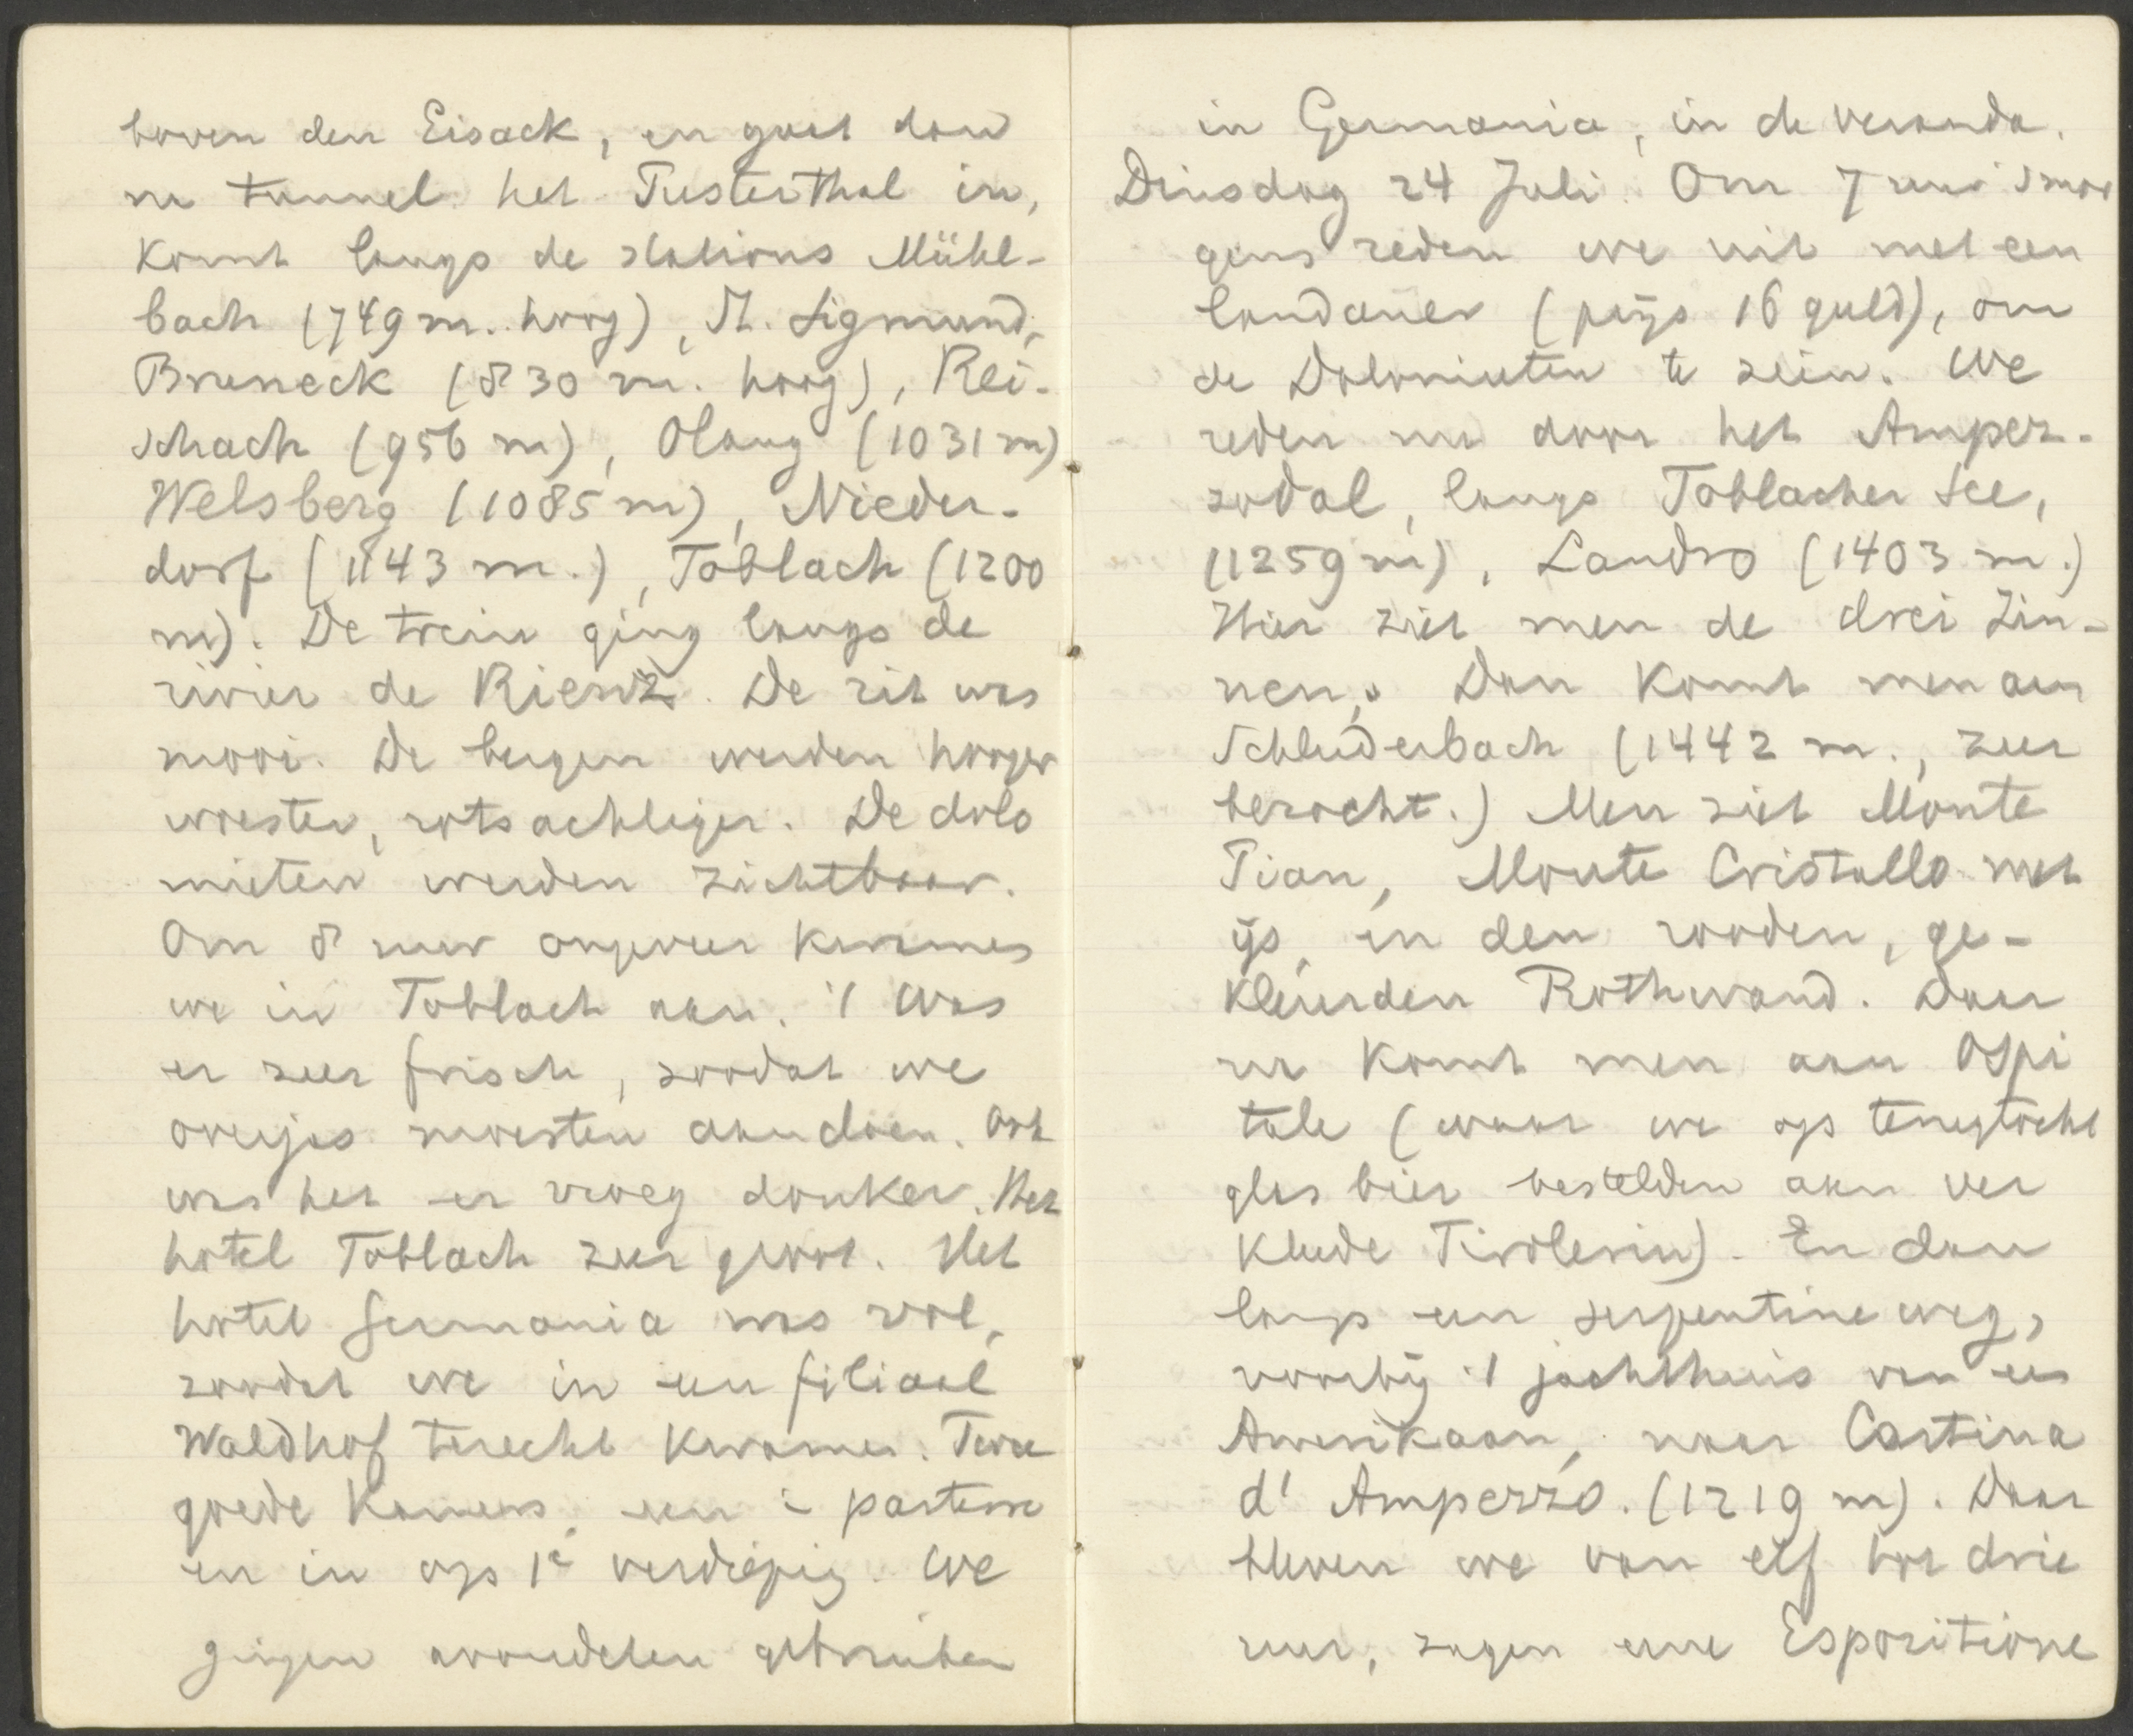 boven den Eisack, en gaat dan
na tunnel het Pusterthal in,
komt langs de stations Mühl-
bach (749 m. hoog), St. Sigmund,
Bruneck (830 m. hoog), Rei-
schach (956 m), Olang (1031 m)
Welsberg (1085 m), Nieder-
dorf (1143 m.), Toblach (1200
m). De trein ging langs de
rivier de Rienz. De rit was
mooi. De bergen werden hooger
woester, rotsachtiger. De dolo
mieten werden zichtbaar.
Om 8 uur ongeveer kwamen
we in Toblach aan. 't Was
er zeer frisch, zoodat we
overjas moesten aandoen. Ook
was het er vroeg donker. Het
hotel Toblach zeer groot. Het
hotel Germania was vol,
zoodat we in een filiaal
Waldhof terecht kwamen. Twee
goede kamers, een à parterre
en in op 1e verdieping. We
gingen avondeten gebruiken
in Germania, in de veranda.
Dinsdag 24 Juli. Om 7 uur smor
gens reden we uit met een
landauer (prijs 16 guld), om
de Dolomieten te zien. We
reden nu door het Ampez-
zodal, langs Toblacher See,
(1259 m), Landro (1403 m.)
Hier ziet men de drei Zin-
nen. Dan komt men aan
Schluderbach (1442 m., zeer
bezocht.) Men ziet Monte
Pian, Monte Cristallo met
ijs, en den rooden, ge-
kleurden Rothwand. Daar
na komt men aan Ospi
tale (waar we op terugtocht
glas bier bestelden aan ver
kleede Tirolerin). En dan
langs een serpentine weg,
voorbij 't jachthuis van een
Amerikaan, naar Cortina
d' Ampezzo. (1219 m). Daar
bleven we van elf tot drie
uur, zagen eene Espozitione